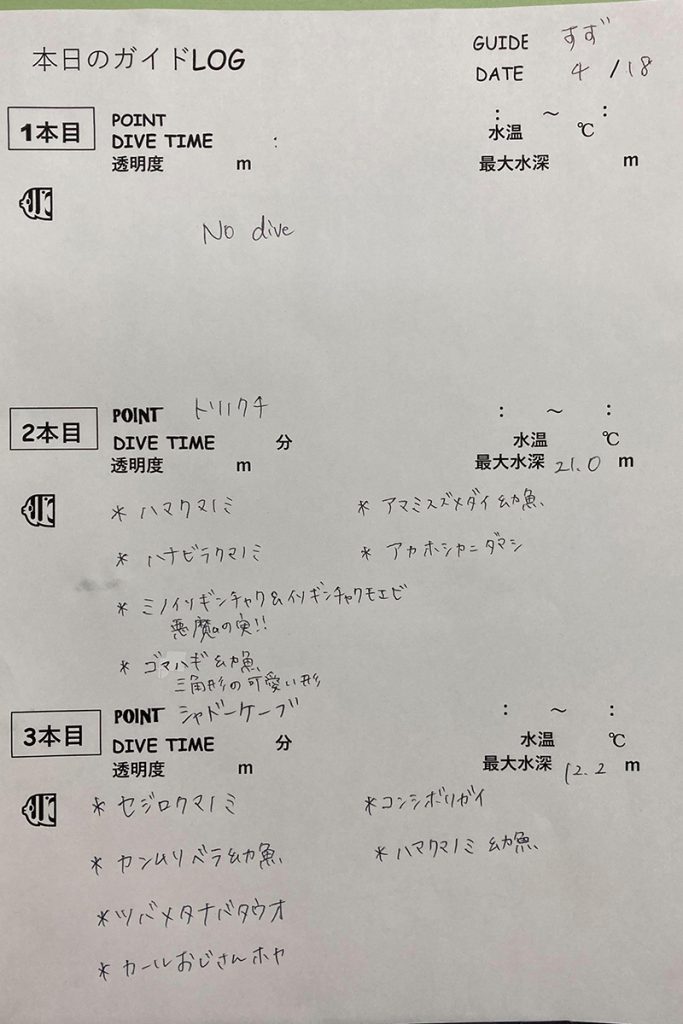 本日のガイドLOG
GUIDE すず
DATE 4/18
1本目
POINT : ～ :
DIVE TIME : 水温 ℃
透明度 m 最大水深 m
No dive
2本目
POINT トリノクチ : ～ :
DIVE TIME 分 水温 ℃
透明度 m 最大水深 21.0 m
* ハマクマノミ * アマミスズメダイ幼魚
* ハナビラクマノミ * アカホシカニダマシ
* ミノイソギンチャク&イソギンチャクモエビ
悪魔の実!!
* ゴマハギ幼魚
三角形の可愛い形
3本目
POINT シャドーケーブ : ～ :
DIVE TIME 分 水温 ℃
透明度 m 最大水深 12.2 m
* セジロクマノミ * コンシボリガイ
* カンムリベラ幼魚 * ハマクマノミ 幼魚
* ツバメタナバタウオ
* カールおじさんホヤ